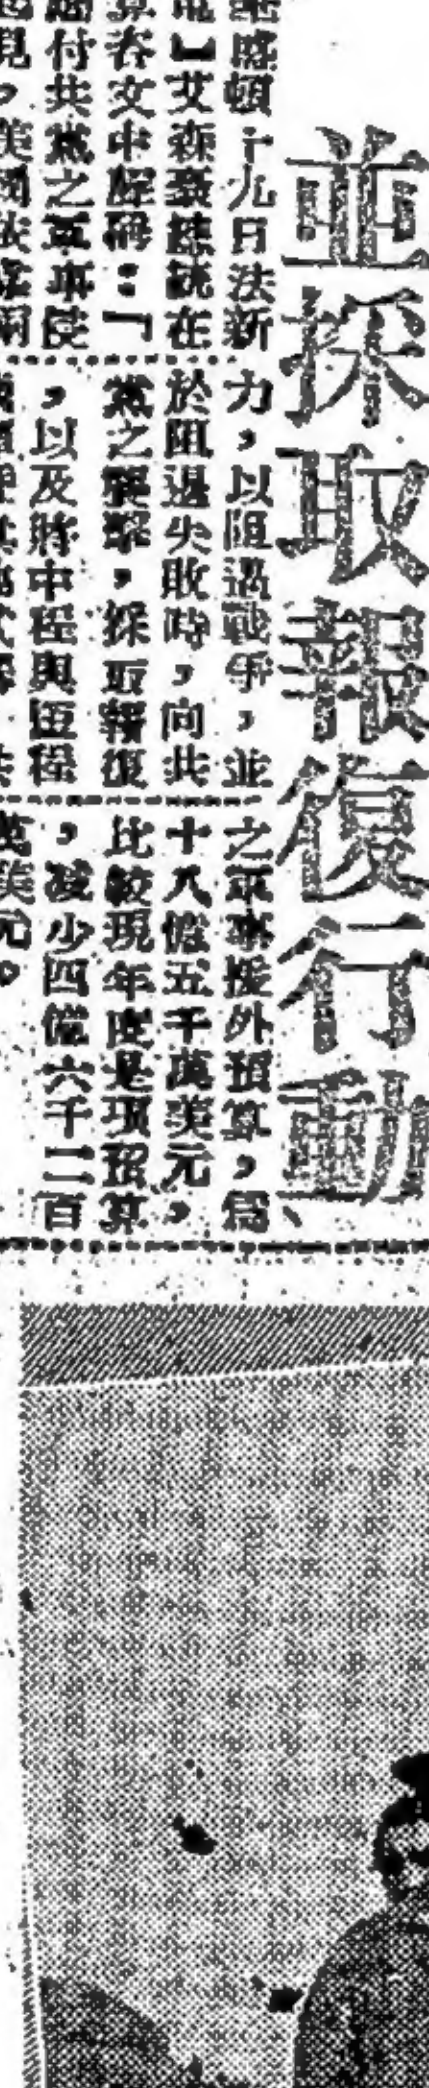 並採取報復行動
盛頓十九日法新
電】艾森豪總統在
算咨文中解釋：「
付共黨之軍事侵
見，美國依
力，以阻遏戰爭，並
於阻遏失敗時，向共
黨之襲擊，採取報復
，以及將中程與恆程
之軍事援外預算，爲
十八億五千萬美元，
比較現年度是項預算
，減少四億六千二百
萬美元。